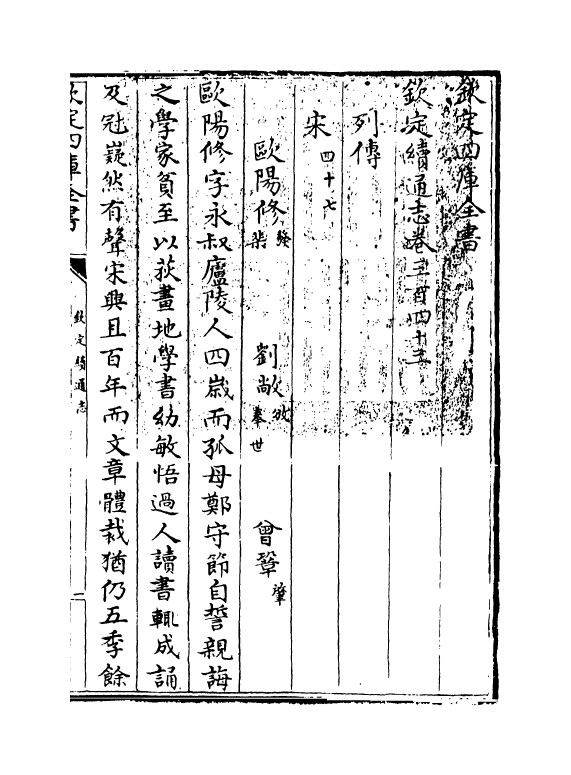 欽定四庫全書
欽定續通志卷三百四十三
列傳
宋四十七
歐陽修發棐 劉敞攽奉世 曾鞏肇
歐陽修字永叔廬陵人四歲而孤母鄭守節自誓親誨
之學家貧至以荻畫地學書幼敏悟過人讀書輒成誦
及冠嶷然有聲宋興且百年而文章體裁猶仍五季餘
欽定四庫全書
欽定續通志
一